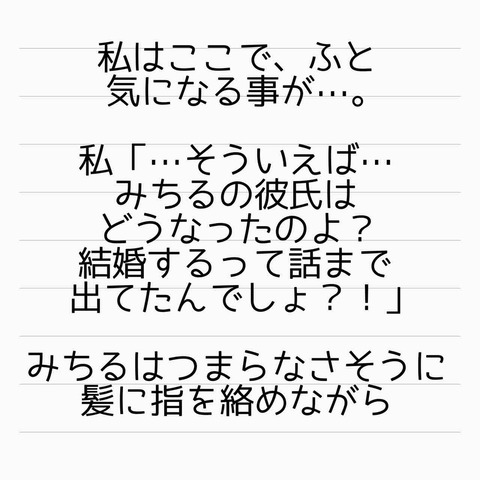 私はここで、ふと
気になる事が…。
私「…そういえば…
みちるの彼氏は
どうなったのよ？
結婚するって話まで
出てたんでしょ？！」
みちるはつまらなさそうに
髪に指を絡めながら